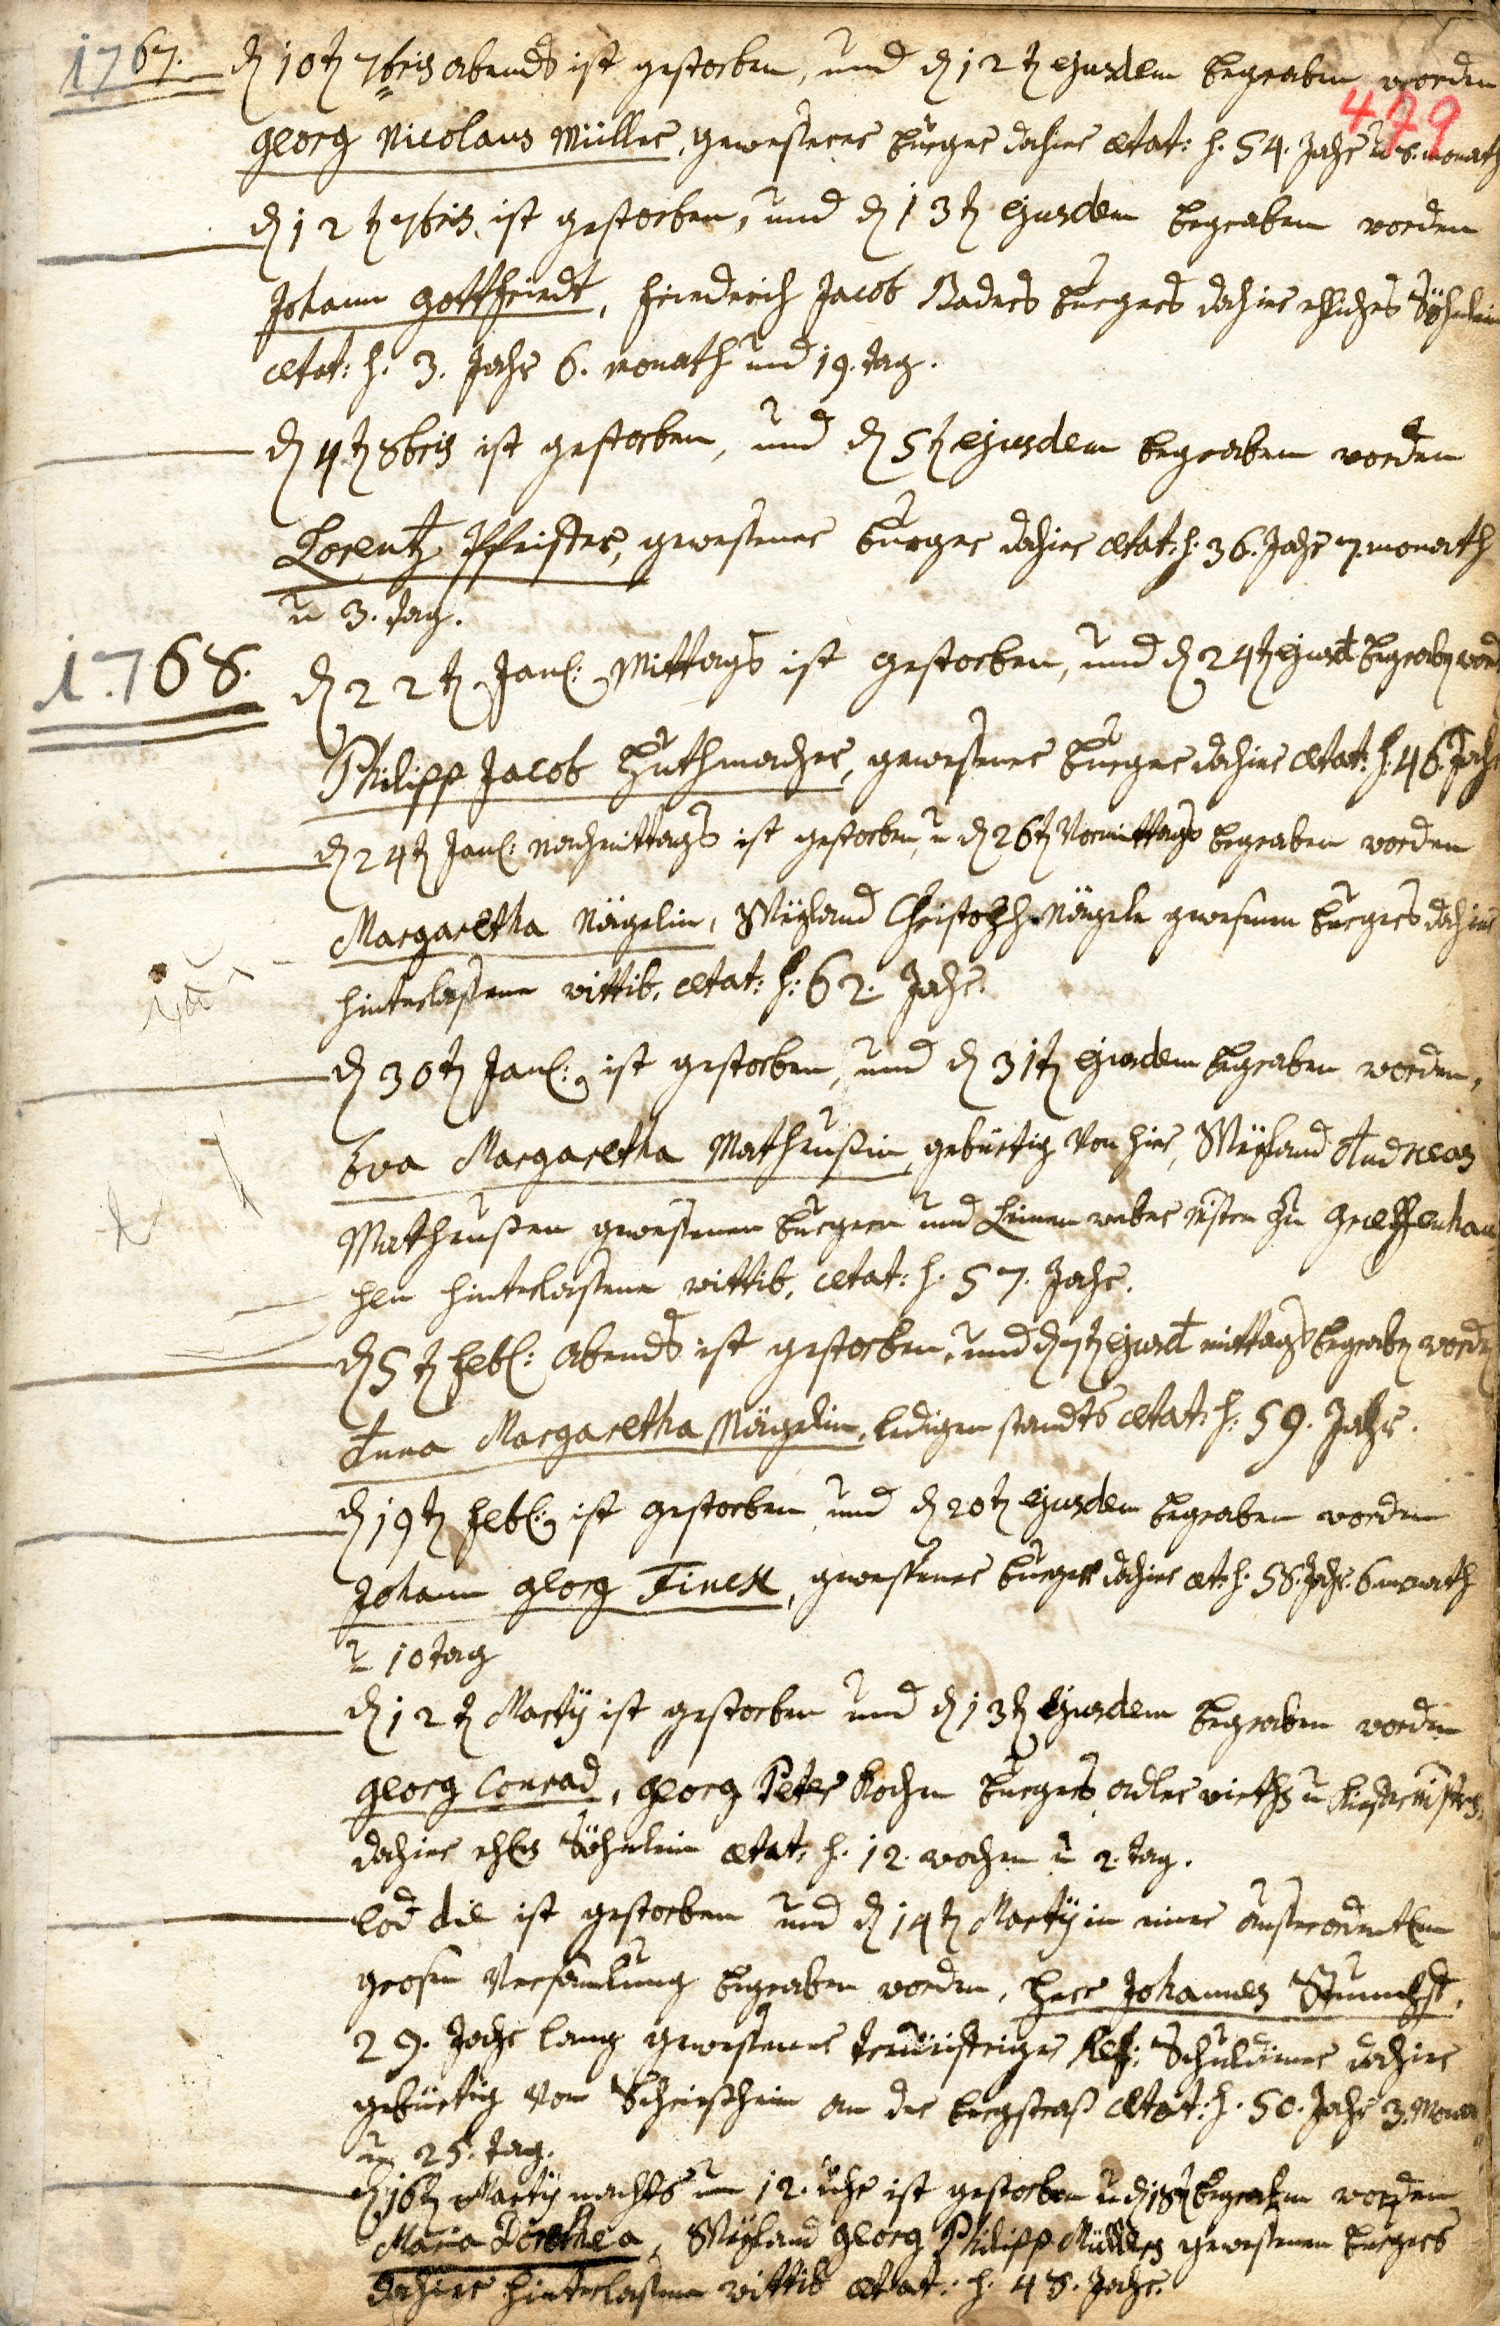 1767. d 10t 7bris abends ist gestorben, und d 12t ejusdem begraben worden
479
Georg Nicolaus Müller, gewesener burger dahier ætat: s. 54. Jahr u 8. monath
d 12t 7bris, ist gestorben, und d 13t ejusdem begraben worden
Johann Gottfriedt, Friederich Jacob Baders burgers dahier ehliches Söhnlein
ætat: s. 3. Jahr 6. monath und 19. tag.
d 4t 8bris ist gestorben, und d 5t ejusdem begraben worden
Lorentz Pfeister, gewesener burger dahier ætat: s. 36. Jahr 7. monath
u 3. tag.
1768. d 22t Jan: Mittags ist gestorben, und d 24t ejusd begrabn word
Philipp Jacob Huthmacher, gewesener burger dahier ætat: s. 46. Jahr
d 24t Jan: nachmittags ist gestorben, u d 26t Vormittags begraben worden
Margaretha Nägelin, Weyland Christoph Nägele gewesenen burgers dahier
hinterlassene wittib, ætat: s: 62. Jahr.
d 30t Jan: ist gestorben, und d 31t ejusdem begraben worden,
Eva Margaretha Matheusin, gebürtig von hier, Weyland Andreas
Matheußen gewesenen burgern und Leinen weber zu Graeffenhau
sen hinterlassene wittib, ætat: s. 57. Jahr.
d 5t Feb: abends ist gestorben, und d 7t ejusd mittags begrabn word
Anna Margaretha Nägelin, ledigen standts ætat: s: 59. Jahr.
d 19t Feb: ist gestorben und d 20t ejusdem begraben worden
Johann Georg Finck, gewesener burger dahier æt: s. 58. Jahr. 6 monath
u 10 tag
d 12t Martÿ ist gestorben und d 13t ejusdem begraben worden
Georg Conrad, Georg Peter Kochen burgers adler wirths u
dahier ehles Söhnlein ætat: s. 12. wochen u 2. tag.
eod die ist gestorben und d 14t Martÿ in einer ausserordentlen
grosen Versamlung begraben worden, Herr Johannes
29. Jahr lang gewesener Ref: Schuldiener dahier
gebürtig von Schriesheim an der bergstras ætat: s. 50. Jahr 3. Mona
u 25. tag.
d 16t Martÿ nachts um 12. uhr ist gestorben u d 18t begraben worden
Maria Dorothea, Weyland Georg Philipp Müllers gewesenen burgers
dahier hinterlassene wittib ætat: s. 48. Jahr.